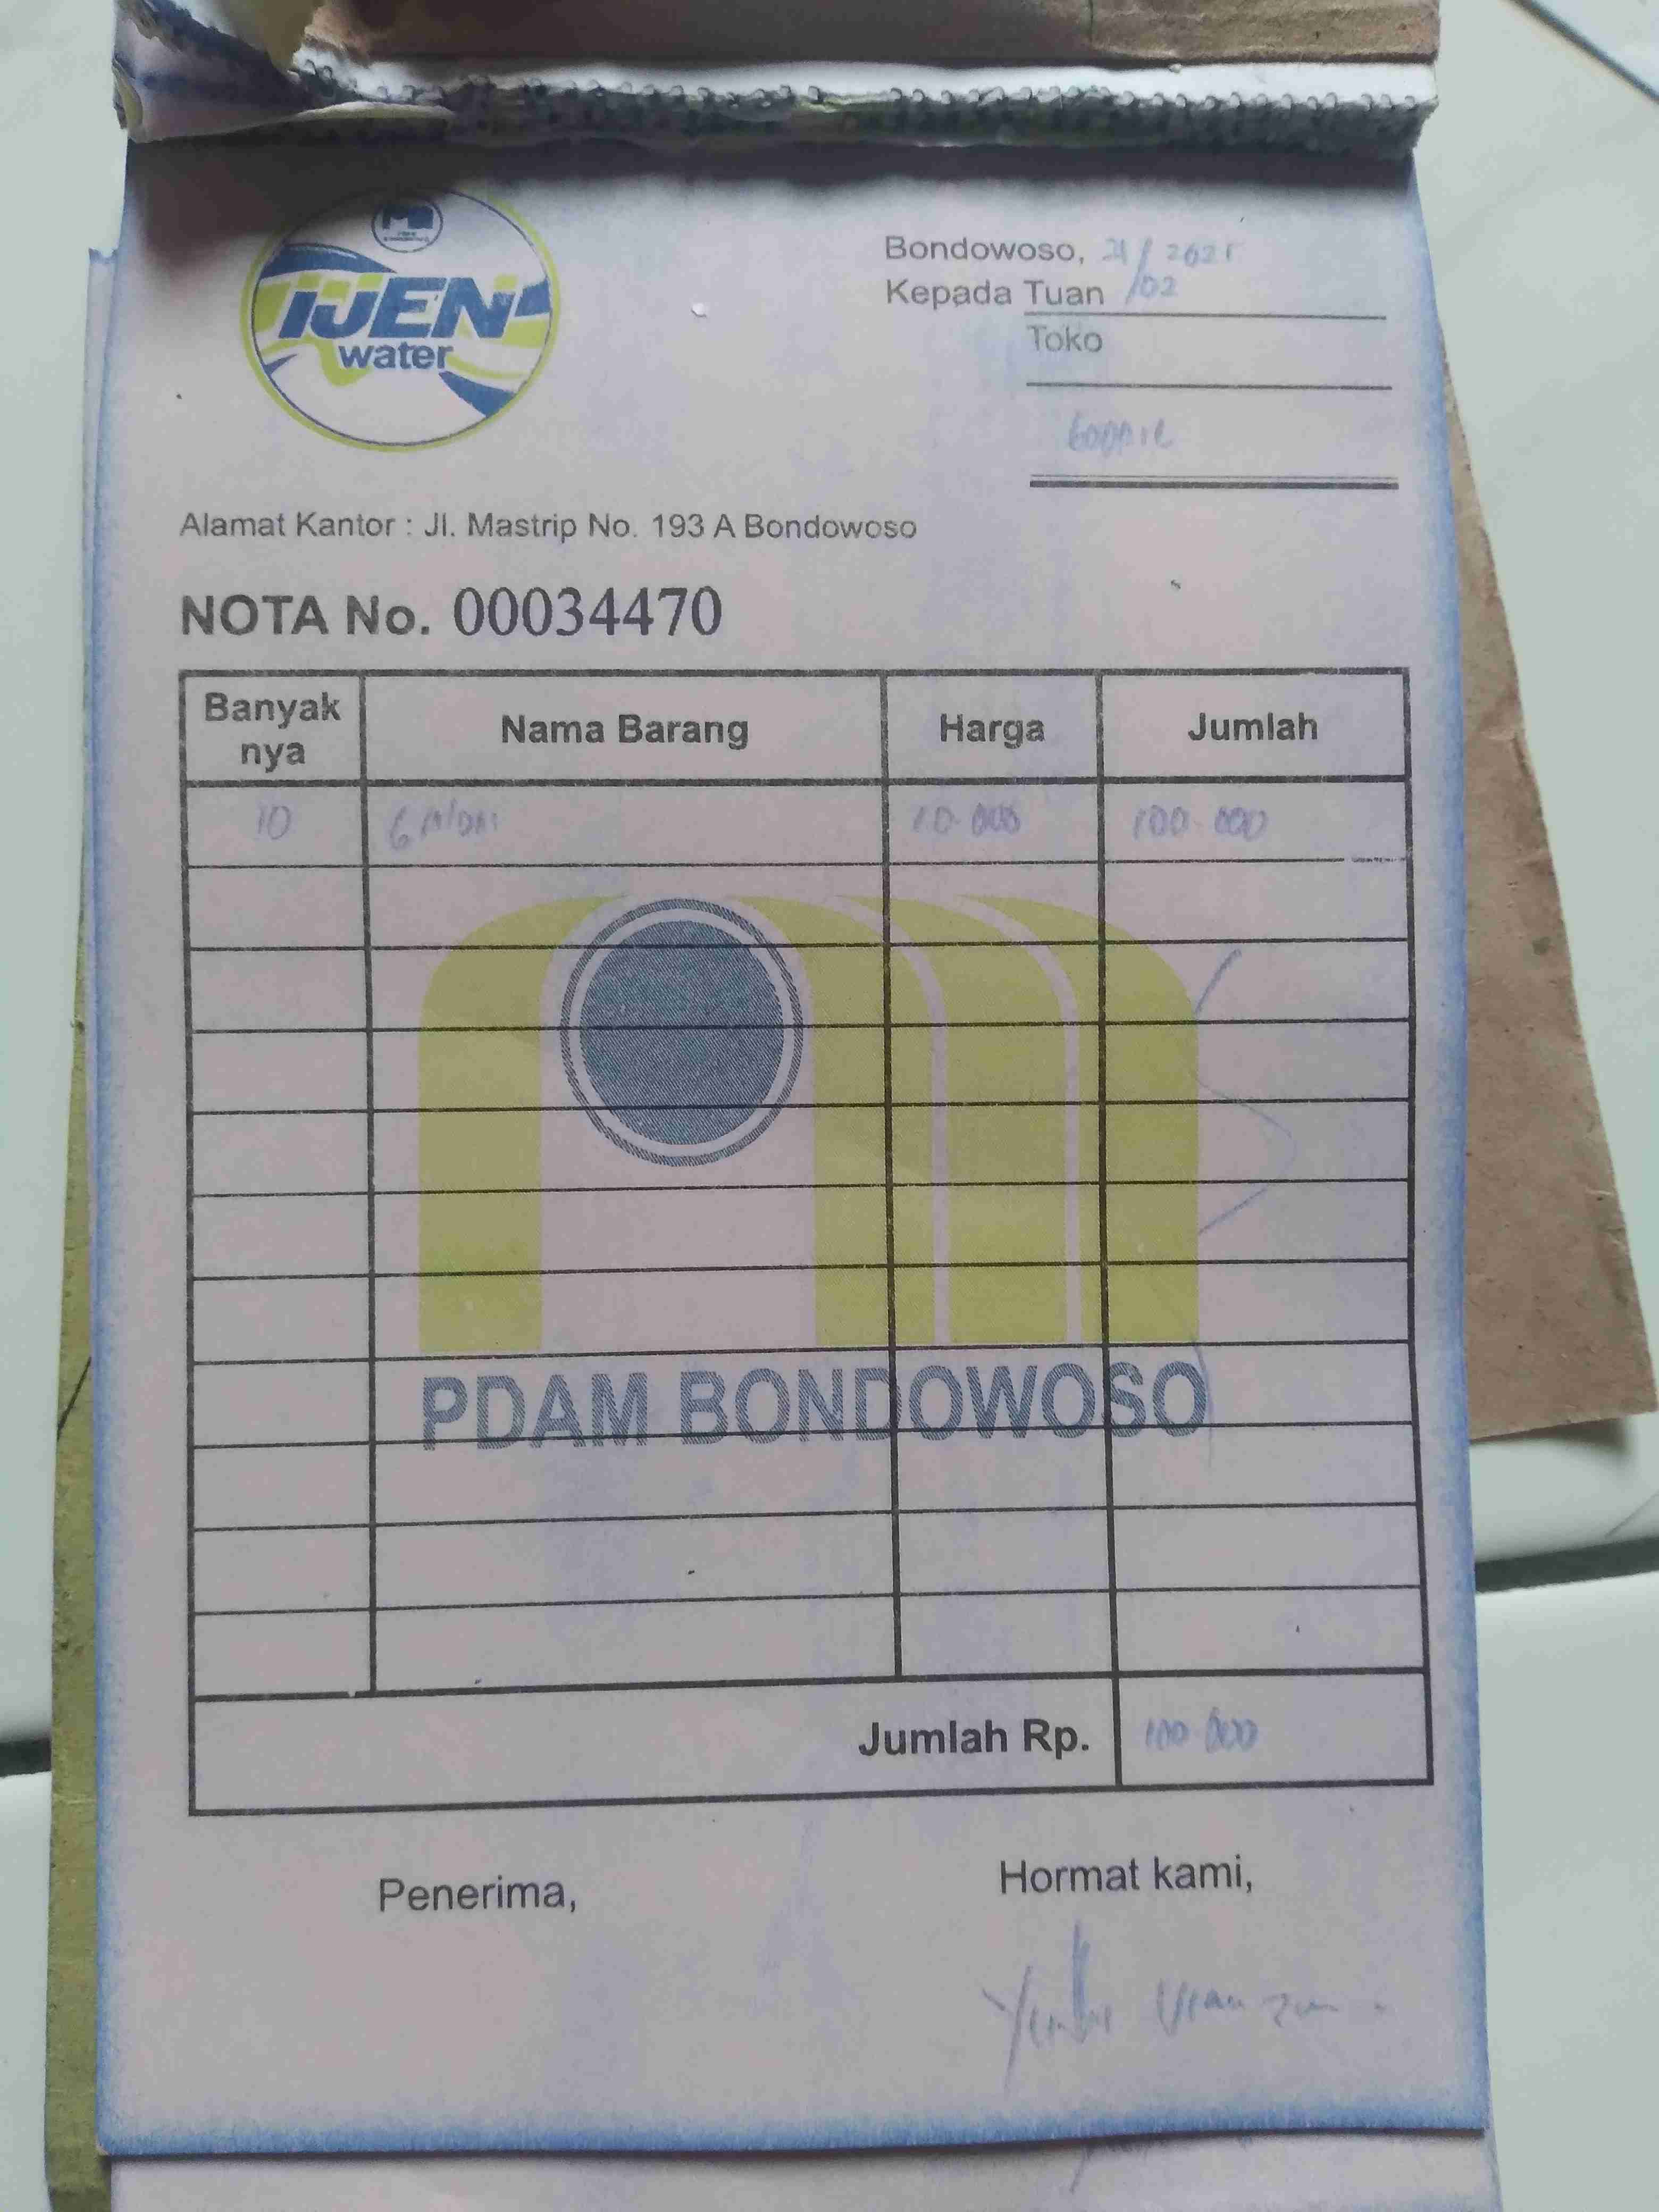 IJEN
water
Bondowoso, 21/02 2025
Kepada Tuan
Toko
Alamat Kantor : Jl. Mastrip No. 193 A Bondowoso
NOTA No. 00034470
Banyak nya Nama Barang Harga Jumlah
10 Galon 10.000 100.000
PDAM BONDOWOSO
Jumlah Rp. 100.000
Penerima,
Hormat kami,